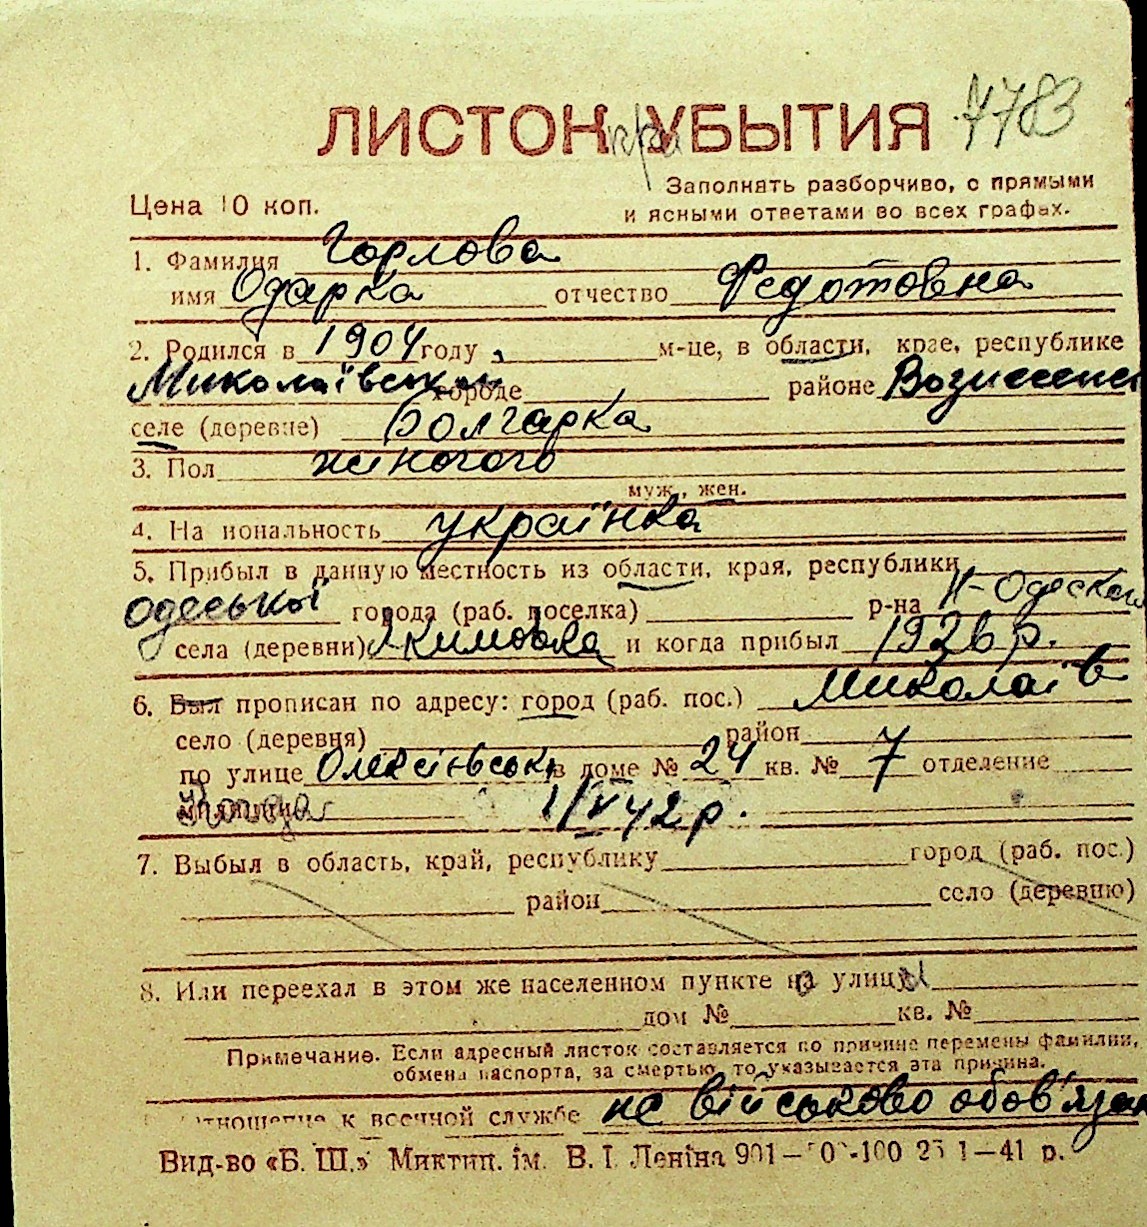 ЛИСТОК УБЫТИЯ 7783
Заполнять разборчиво, с прямыми
Цена 10 коп. и ясными ответами во всех графах.
1. Фамилия Горлова
имя Одарка отчество Федотовна
2. Родился в 1904 году м-це, в области, крае, республике
Миколаївській городе районе Вознесенсь
селе (деревне) Болгарка
3. Пол жіночого
муж., жен.
4. Национальность українка
5. Прибыл в данную местность из области, края, республики
Одеської города (раб. поселка) р-на Н-Одеськ
села (деревни) Якимовка и когда прибыл 1926 р.
6. Был прописан по адресу: город (раб. пос.) Миколаїв
село (деревня) район
по улице Олексіївськ в доме № 24 кв. № 7 отделение
милиции 1/V 42 р.
7. Выбыл в область, край, республику город (раб. пос.)
район село (деревню)
8. Или переехал в этом же населенном пункте на улицу
дом № кв. №
Примечание. Если адресный листок составляется по причине перемены фамилии,
обмена паспорта, за смертью, то указывается эта причина.
Отношение к военной службе не військово обов'яза
Вид-во «Б. Ш.» Миктип. ім. В. І. Леніна 901— -100 1—41 р.